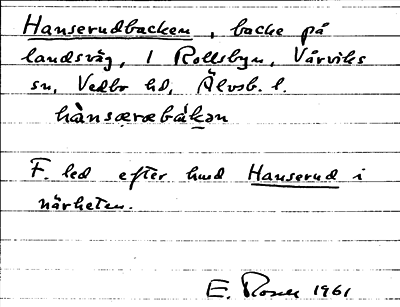 Hanserudbacken, backe på
landsväg, i Rollsbyn, Vårviks
sn, Vedbo hd, Älvsb. l.
hànsæræbákən
F. led efter hmd Hanserud i
närheten.
E. Rosen 1961